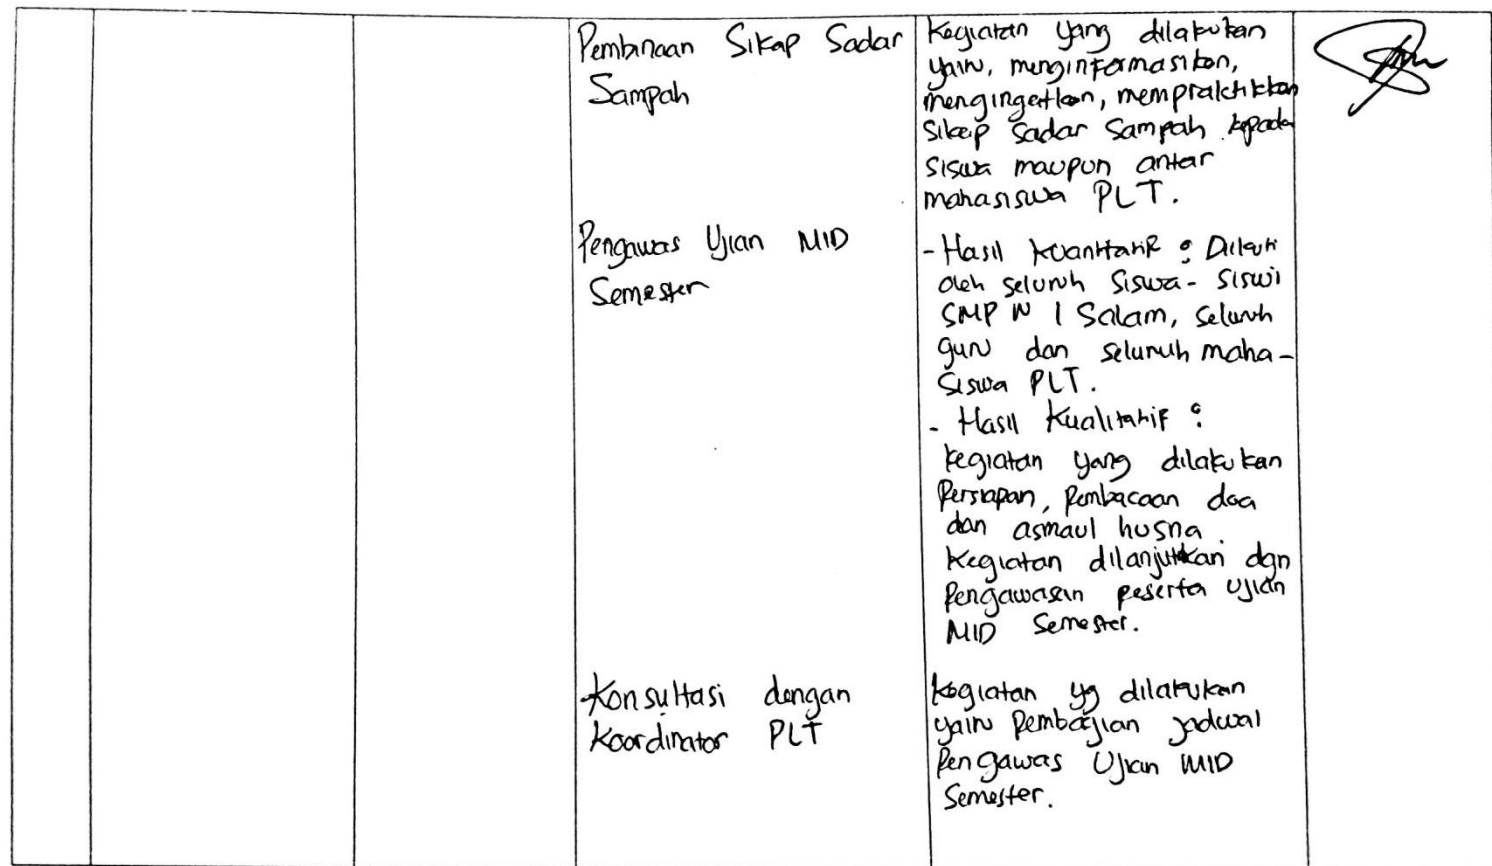 Pembinaan Sikap Sadar
Sampah
Kegiatan yang dilakukan
yaitu, menginformasikan,
mengingatkan, mempraktikkan
sikap sadar sampah kepada
siswa maupun antar
mahasiswa PLT.
Pengawas Ujian MID
Semester
- Hasil Kuantitatif : Diikuti
oleh seluruh siswa - siswi
SMP N 1 Salam, seluruh
guru dan seluruh maha-
siswa PLT.
- Hasil Kualitatif :
kegiatan yang dilakukan
Persiapan, Pembacaan doa
dan asmaul husna.
Kegiatan dilanjutkan dgn
Pengawasan peserta Ujian
MID Semester.
Konsultasi dengan
Koordinator PLT
kegiatan yg dilakukan
yaitu Pembagian jadwal
Pengawas Ujian MID
Semester.